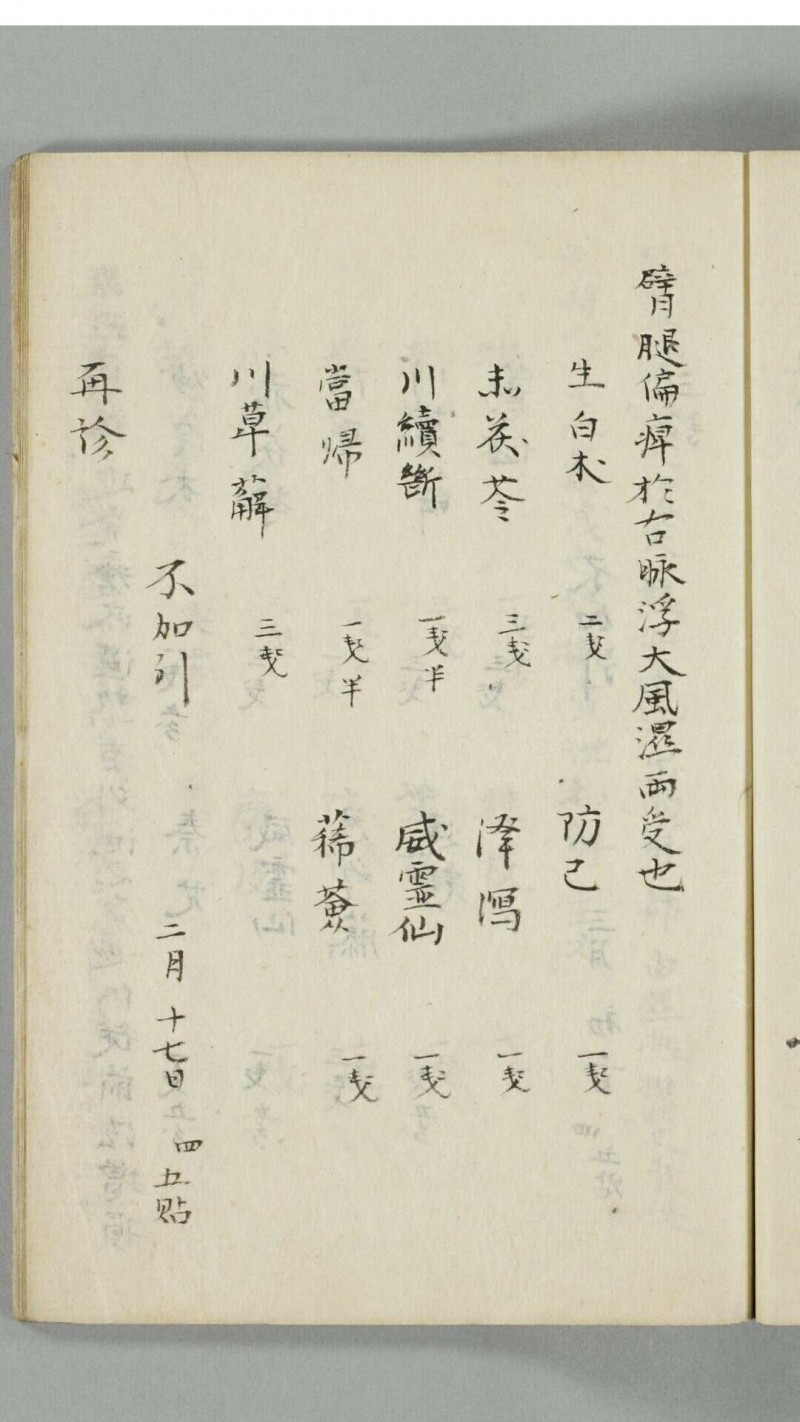 臂腿偏痺於右脉浮大風濕両受也
生白术 二戔 防己 一戔
赤茯苓 三戔 泽瀉 一戔
川續斷 一戔半 威霊仙 一戔
當帰 一戔半 薟 一戔
川草薢 三戔
不加引 二月十七日 四五貼
再診